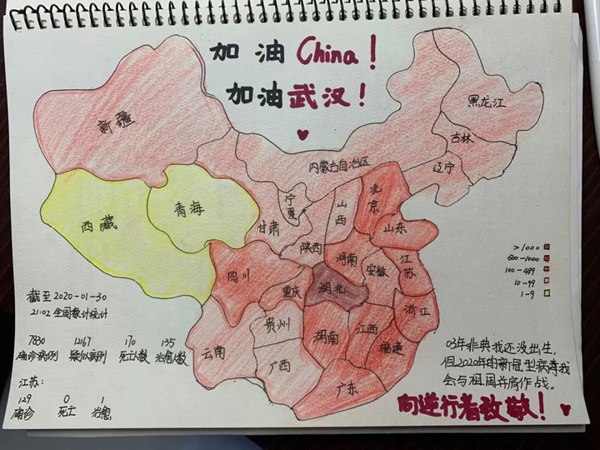 加油China！
加油武汉！
黑龙江
新疆
吉林
内蒙古自治区
辽宁
北京
宁夏
山西
青海
西藏
甘肃
山东
陕西
河南
江苏
安徽
四川
湖北
重庆
浙江
贵州
湖南
江西
福建
云南
广西
广东
>1000
500-1000
100-499
10-99
1-9
截至2020-01-30
21:02 全国数计统计
7830 12167 170 135
确诊病例 疑似病例 死亡人数 治愈人数
江苏：
129 0 1
确诊 死亡 治愈
03年非典我还没出生，
但2020年的新冠型病毒我
会与祖国并肩作战。
向逆行者致敬！